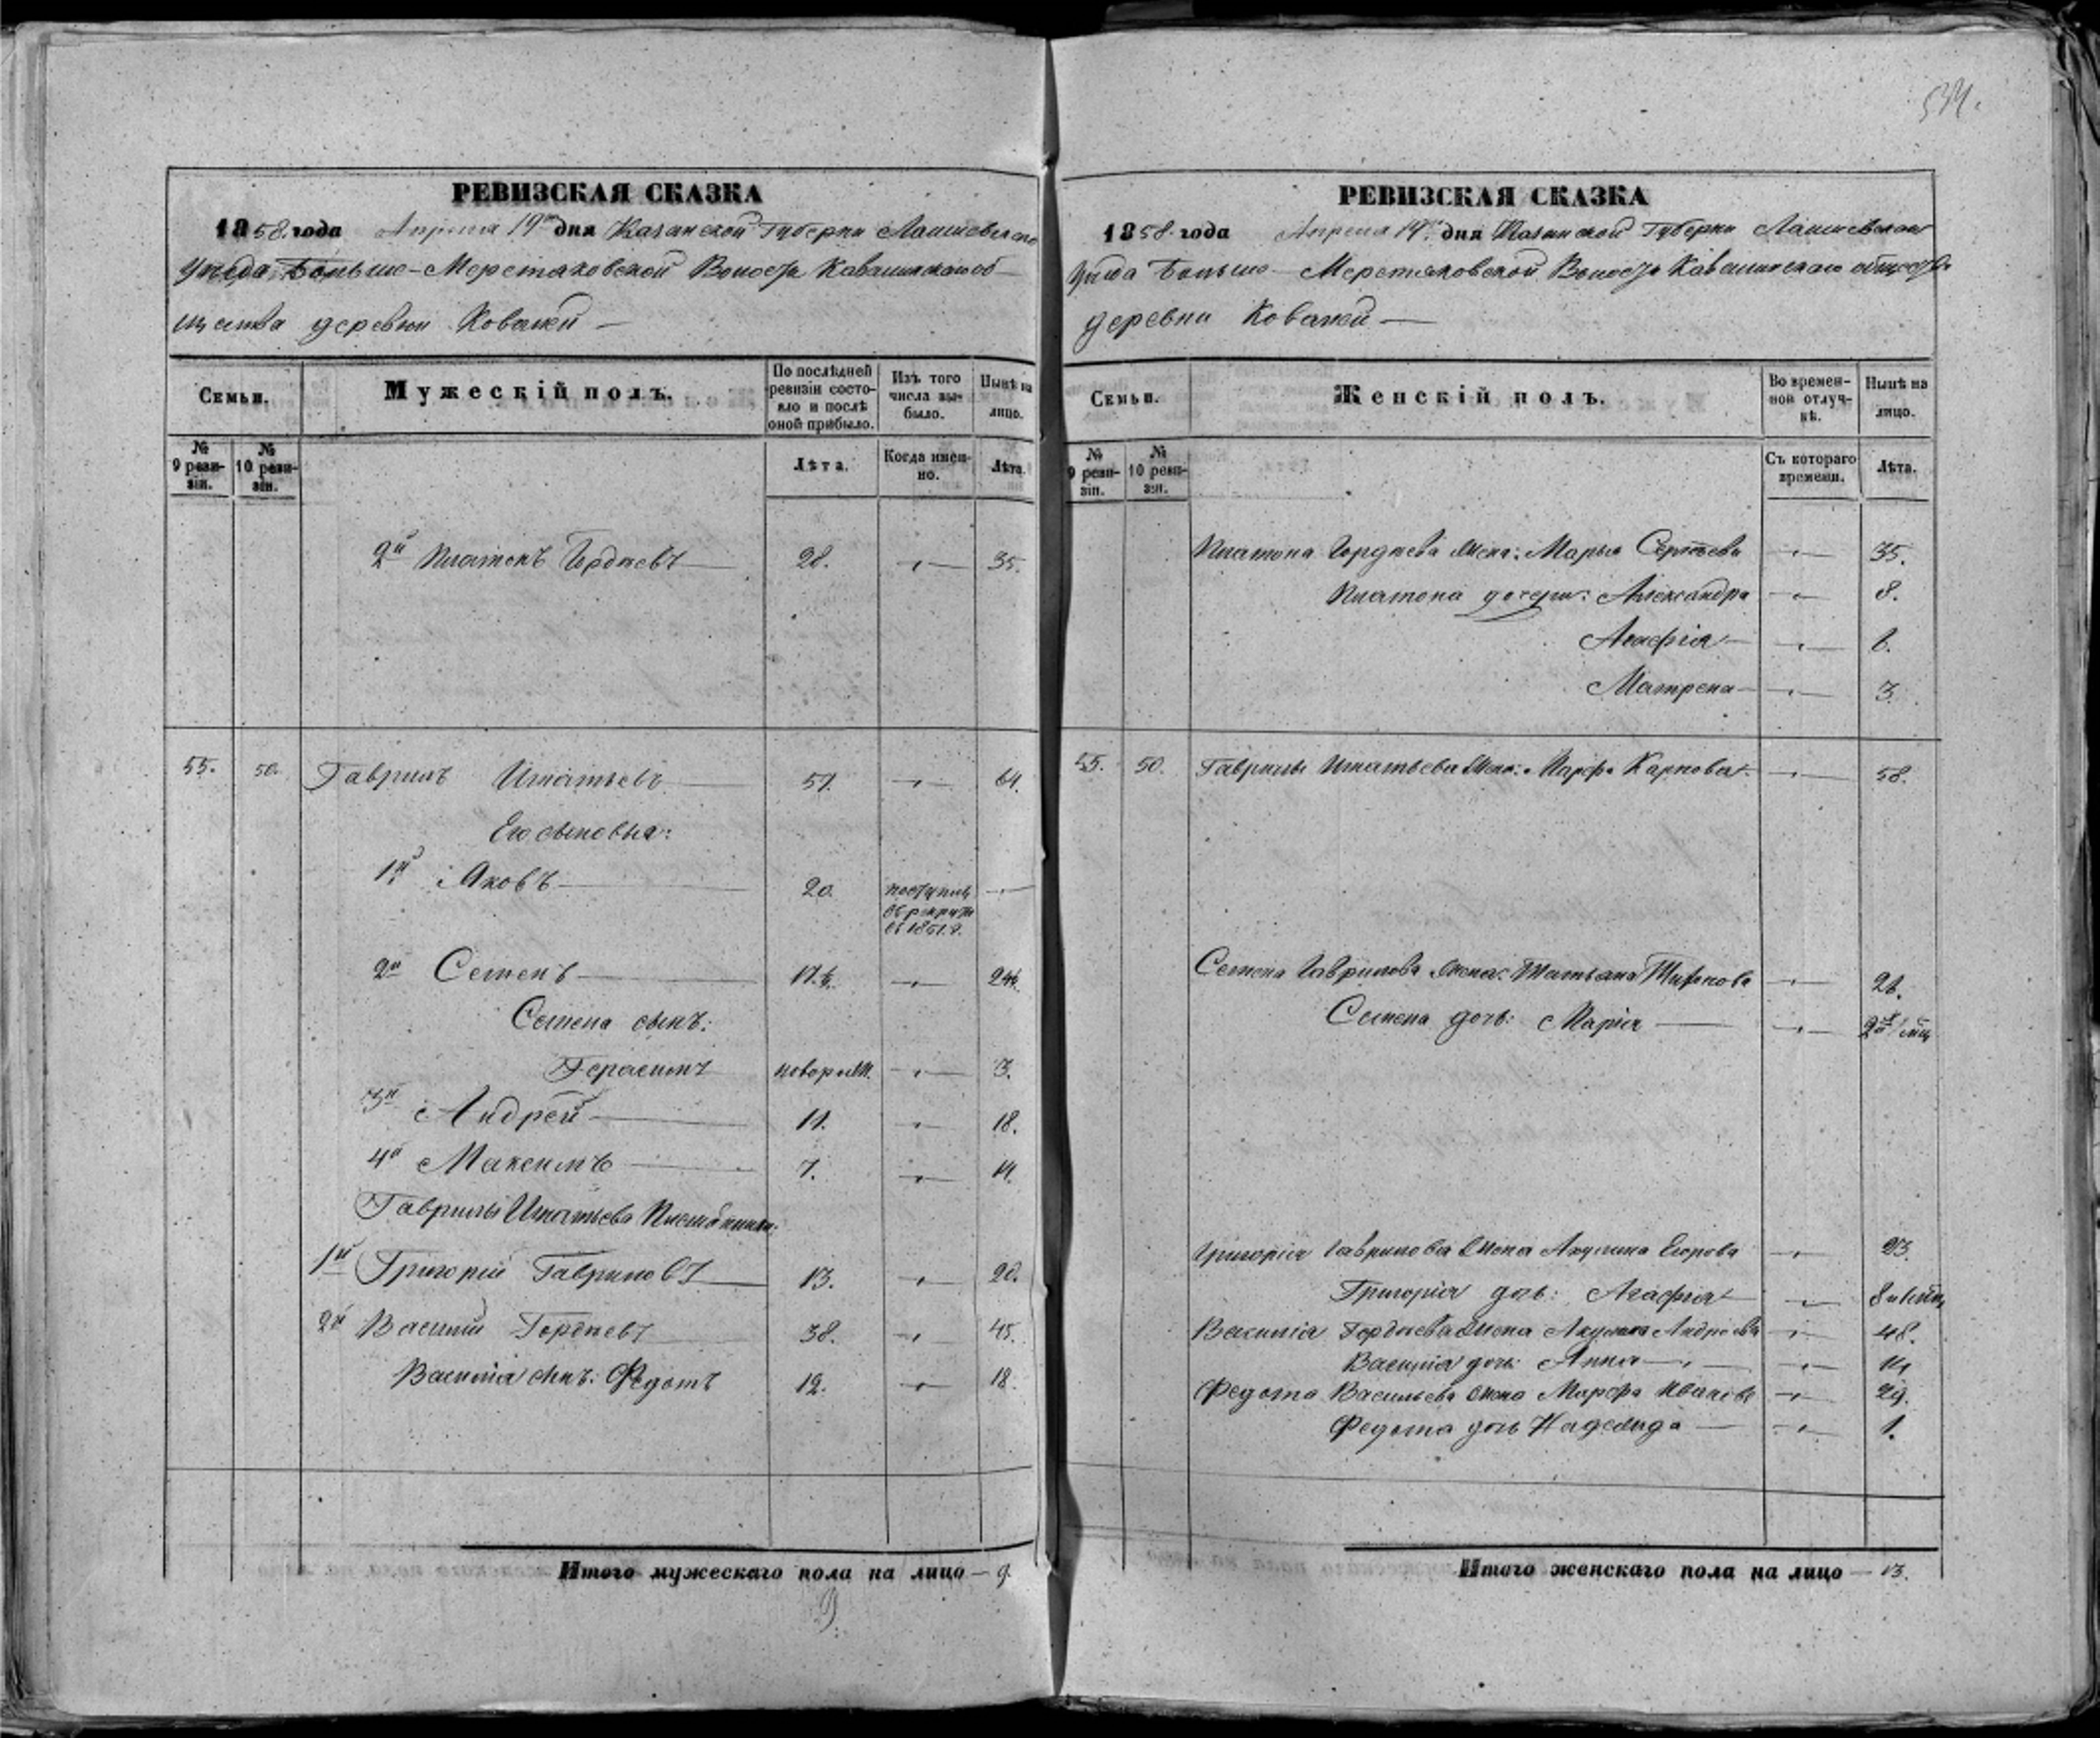 534.
РЕВИЗСКАЯ СКАЗКА
1858. года Апреля 19го дня Казанской Губерни Лаишевскаго
Уѣзда, Больше-Меретяковской Волости Кавалинскаго об-
щества деревни Ковалей —
Семьи.
Мужескій полъ.
По послѣдней ревизіи состо-
яло и послѣ оной прибыло.
Изъ того числа вы-
было.
Нынѣ на лицо.
№ 9 реви-
зіи.
№ 10 реви-
зіи.
Лѣта.
Когда имен-
но.
Лѣта.
2й Платонъ Гордѣевъ 28. — 35.
55. 50. Гаврилъ Игнатьевъ 57. — 64.
Его сыновья:
1й Яковъ 20. поступилъ въ рекруты въ 1851 г. —
2й Семенъ 17½. — 24½.
Семена сынъ:
Герасимъ новорож. — 3.
3й Андрей 11. — 18.
4й Максимъ 7. — 14.
Гаврилы Игнатьева Племянники:
1й Григорій Гавриловъ 13. — 20.
2й Василій Гордѣевъ 38. — 45.
Василія сынъ: Федотъ 12. — 18.
Итого мужескаго пола на лицо — 9.
9.
РЕВИЗСКАЯ СКАЗКА
1858. года Апреля 19го дня Казанской Губерни Лаишевскаго
Уѣзда Больше-Меретяковской Волости Кавалинскаго общества
деревни Ковалей —
Семьи.
Женскій полъ.
Во времен-
ной отлуч-
кѣ.
Нынѣ на лицо.
№ 9 реви-
зіи.
№ 10 реви-
зіи.
Съ котораго времени.
Лѣта.
Платона Гордѣева жена: Марья Сергѣева — 35.
Платона дочери: Александра — 8.
Агафія — 6.
Матрена — 3.
55. 50. Гаврилы Игнатьева жена: Марфа Карпова — 58.
Семена Гаврилова жена: Татьяна — 26.
Семена дочь: Марія —
Григорія Гаврилова жена Акулина Егорова — 23.
Григорія дочь: Агафія —
Василія Гордѣева жена Акулина Андреева — 48.
Василія дочь: Анна — 14
Федота Васильева жена Марфа Иванова — 29.
Федота дочь Надежда — 1.
Итого женскаго пола на лицо — 13.